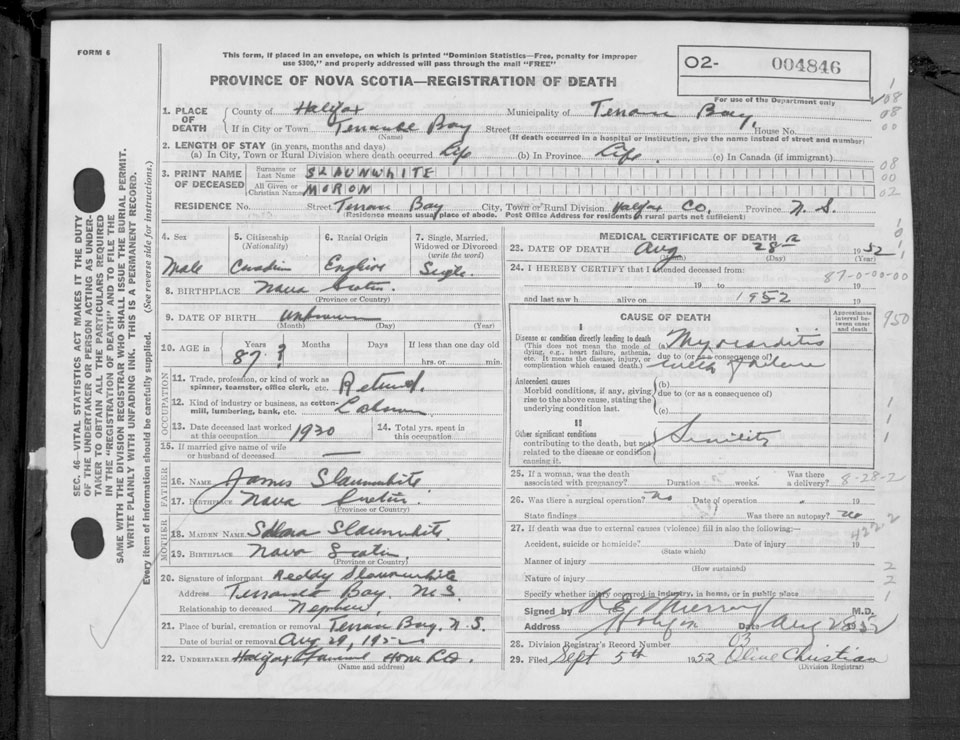 FORM 6
This form, if placed in an envelope, on which is printed "Dominion Statistics—Free, penalty for improper
use $300," and properly addressed will pass through the mail "FREE"
PROVINCE OF NOVA SCOTIA—REGISTRATION OF DEATH
O2- 004846
For use of the Department only
1. PLACE OF DEATH
County of Halifax Municipality of Terrance Bay,
If in City or Town Terrance Bay Street House No.
(Name) (If death occurred in a hospital or institution, give the name instead of street and number)
2. LENGTH OF STAY (in years, months and days)
(a) In City, Town or Rural Division where death occurred Life (b) In Province Life. (c) In Canada (if immigrant)
3. PRINT NAME OF DECEASED
Surname or Last Name SLAUNWHITE
All Given or Christian Names MORON
RESIDENCE No. Street Terrance Bay City, Town or Rural Division Halifax Co, Province N. S.
(Residence means usual place of abode. Post Office Address for residents in rural parts not sufficient)
4. Sex Male
5. Citizenship (Nationality) Canadian
6. Racial Origin English
7. Single, Married, Widowed or Divorced (write the word) Single
8. BIRTHPLACE Nova Scotia
(Province or Country)
9. DATE OF BIRTH Unknown
(Month) (Day) (Year)
10. AGE in Years 87? Months Days If less than one day old
hrs. or min.
OCCUPATION
11. Trade, profession, or kind of work as
spinner, teamster, office clerk, etc. Retired.
12. Kind of industry or business, as cotton-
mill, lumbering, bank, etc.
13. Date deceased last worked
at this occupation 1930
14. Total yrs. spent in
this occupation
15. If married give name of wife
or husband of deceased —
FATHER
16. NAME James Slaunwhite
17. BIRTHPLACE Nova Scotia
(Province or Country)
MOTHER
18. MAIDEN NAME Slaunwhite
19. BIRTHPLACE Nova Scotia
(Province or Country)
20. Signature of informant Reddy Slaunwhite
Address Terrance Bay, N.S.
Relationship to deceased Nephew,
21. Place of burial, cremation or removal Terrance Bay, N.S.
Date of burial or removal Aug 29, 1952
22. UNDERTAKER Halifax Funeral Home Co.
(Name and address)
MEDICAL CERTIFICATE OF DEATH
23. DATE OF DEATH Aug 28 1952
(Month) (Day) (Year)
24. I HEREBY CERTIFY that I attended deceased from:
19 to 19
and last saw h alive on 1952 19
CAUSE OF DEATH
Approximate interval between onset and death
I
Disease or condition directly leading to death
(This does not mean the mode of dying, e.g., heart failure, asthma, etc. It means the disease, injury, or complication which caused death.)
(a) Myocarditis
due to (or as a consequence of)
with failure
Antecedent causes
Morbid conditions, if any, giving rise to the above cause, stating the underlying condition last.
(b)
due to (or as a consequence of)
(c)
II
Other significant conditions
contributing to the death, but not related to the disease or condition causing it.
Senility
25. If a woman, was the death
associated with pregnancy? Duration weeks Was there a delivery?
26. Was there a surgical operation? No Date of operation 19
State findings Was there an autopsy? No
27. If death was due to external causes (violence) fill in also the following:—
Accident, suicide or homicide? Date of injury 19
(State which)
Manner of injury
(How sustained)
Nature of injury
Specify whether injury occurred in industry, in home, or in public place
Signed by Murray M.D.
Address Halifax Date Aug 28 1952
28. Division Registrar's Record Number 03
29. Filed Sept 5th 1952 Olive Christian
(Division Registrar)
87-0-00-00
950
8-28-2
422.2
SEC. 46—VITAL STATISTICS ACT MAKES IT THE DUTY
OF THE UNDERTAKER OR PERSON ACTING AS UNDER-
TAKER TO OBTAIN ALL THE PARTICULARS REQUIRED
IN THE "REGISTRATION OF DEATH" AND TO FILE THE
SAME WITH THE DIVISION REGISTRAR WHO SHALL ISSUE THE BURIAL PERMIT.
WRITE PLAINLY WITH UNFADING INK. THIS IS A PERMANENT RECORD.
Every item of information should be carefully supplied. (See reverse side for instructions.)